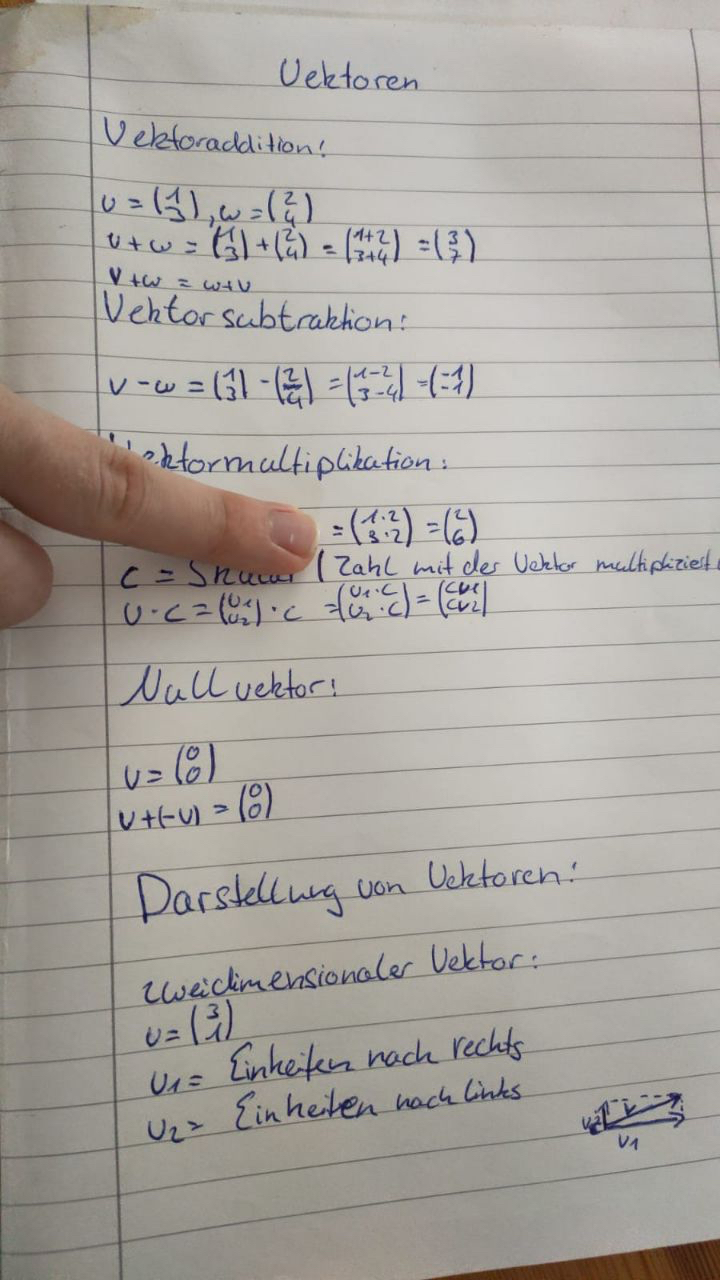 Vektoren
Vektoraddition:
v = (1 3), w = (2 4)
v + w = (1 3) + (2 4) = (1+2 3+4) = (3 7)
v+w = w+v
Vektorsubtraktion:
v - w = (1 3) - (2 4) = (1-2 3-4) = (-1 -1)
Vektormultiplikation:
= (1·2 3·2) = (2 6)
c = Skalar (Zahl mit der Vektor multipliziert
v · c = (v1 v2) · c = (v1·c v2·c) = (cv1 cv2)
Nullvektor:
v = (0 0)
v+(-v) = (0 0)
Darstellung von Vektoren:
zweidimensionaler Vektor:
v = (3 1)
v1 = Einheiten nach rechts
v2 = Einheiten nach links
v2 v
v1